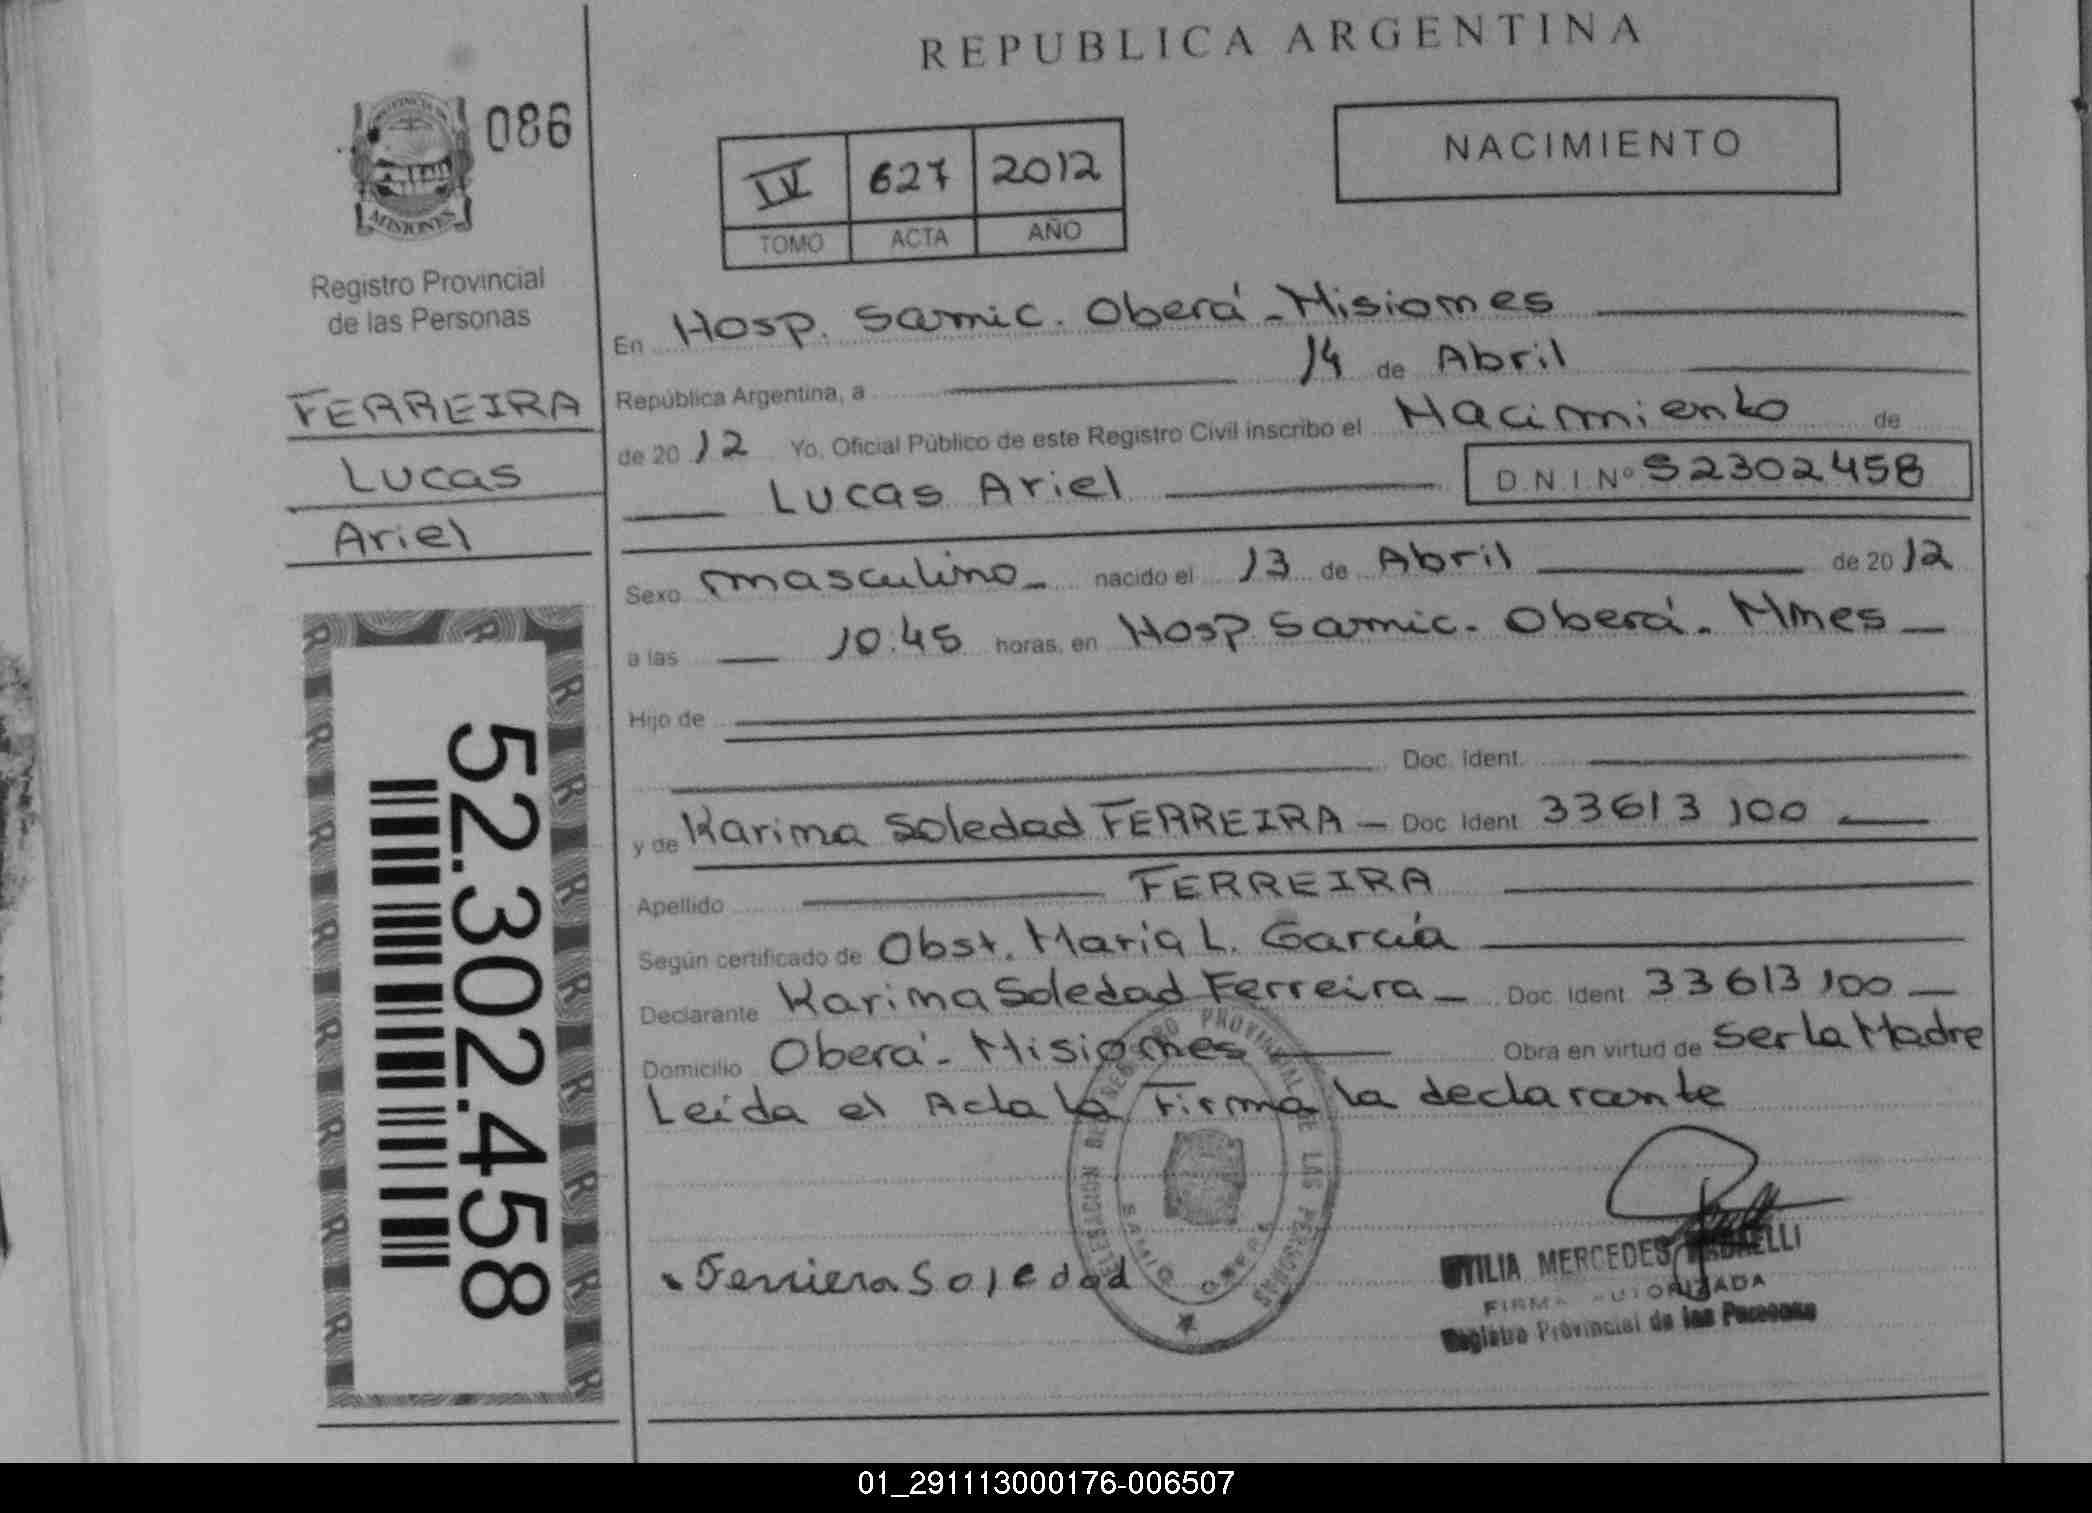 REPUBLICA ARGENTINA
PROVINCIA DE
MISIONES
086
Registro Provincial
de las Personas
FERREIRA
Lucas
Ariel
52.302.458
IV 627 2012
TOMO ACTA AÑO
NACIMIENTO
En Hosp. Samic. Oberá - Misiones
República Argentina, a 14 de Abril
de 2012 Yo, Oficial Público de este Registro Civil inscribo el Nacimiento de
Lucas Ariel D.N.I. Nº 52302458
Sexo masculino nacido el 13 de Abril de 2012
a las 10:45 horas, en Hosp Samic. Oberá. Mnes
Hijo de
Doc. Ident.
y de Karina Soledad FERREIRA Doc Ident 33613100
Apellido FERREIRA
Según certificado de Obst. Maria L. García
Declarante Karina Soledad Ferreira Doc. Ident 33613100
Domicilio Oberá - Misiones Obra en virtud de Ser la Madre
Leída el Acta la Firma la declarante
DELEGACION DEL REGISTRO PROVINCIAL DE LAS PERSONAS
SAMIC OBERA
Ferriera Soledad
MERCEDES
FIRMA AUTORIZADA
Registro Provincial de las Personas
01_291113000176-006507